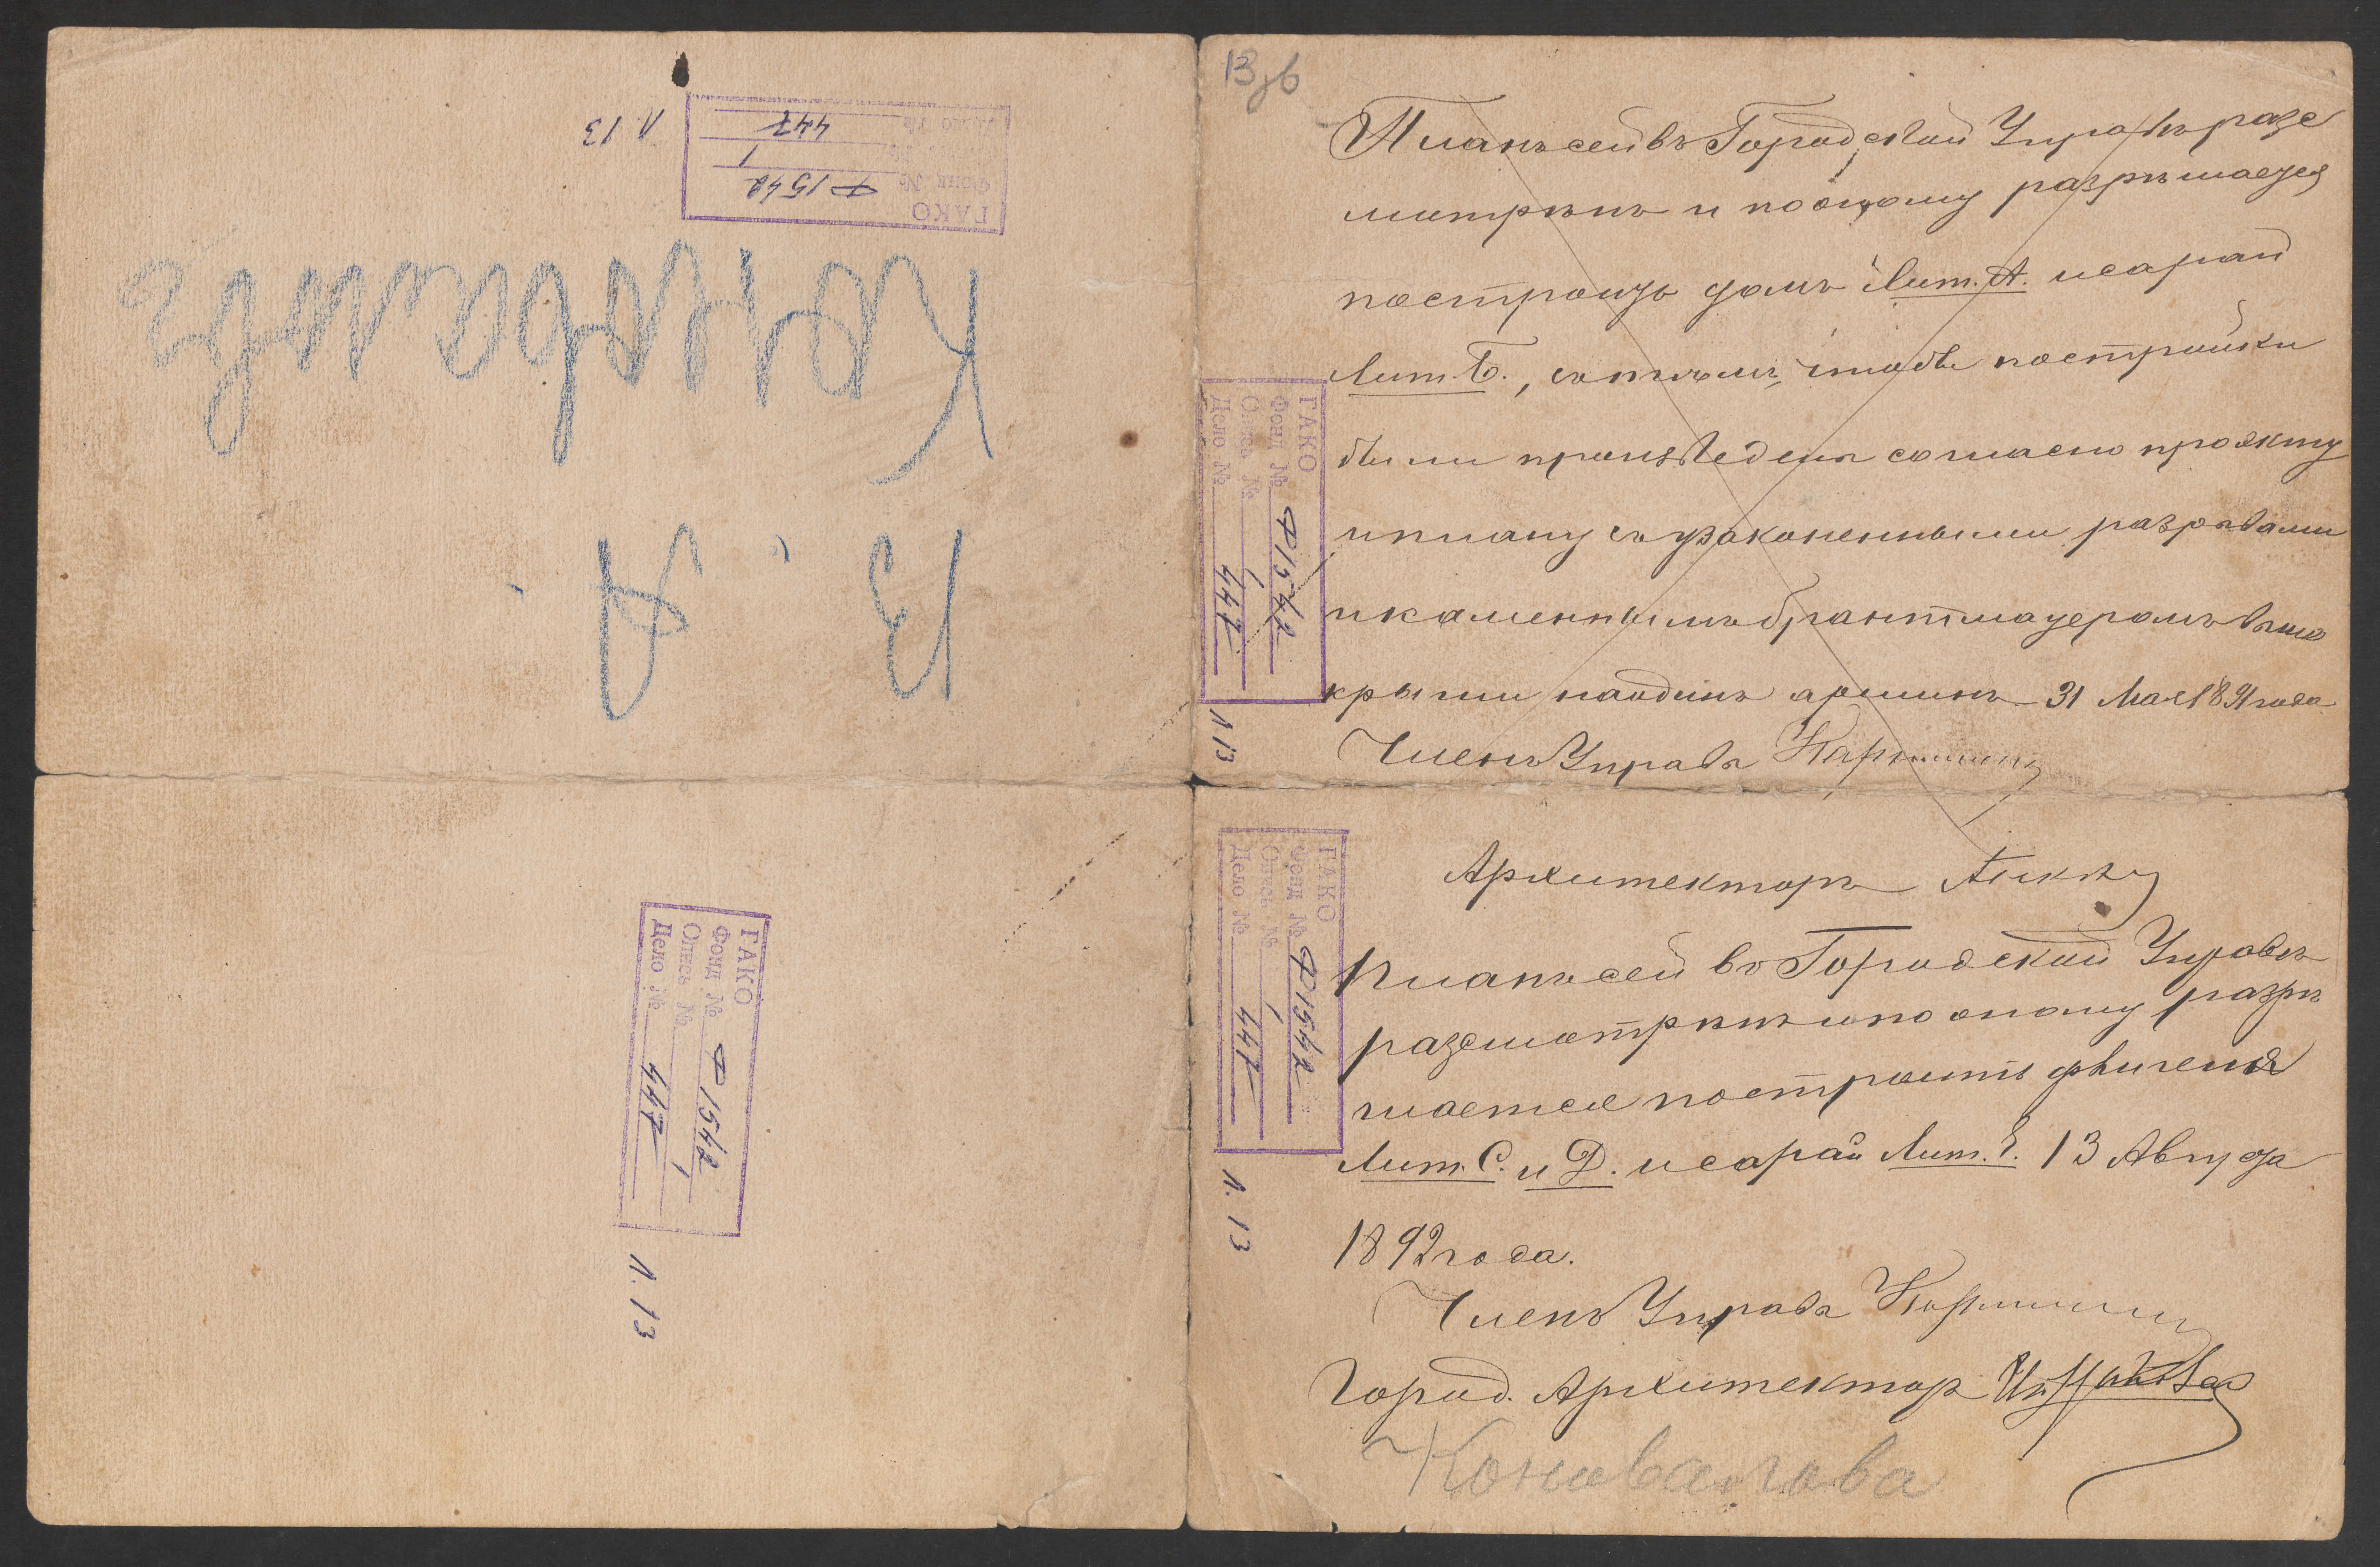 13 об
Планъ сей въ Городской Управѣ разс
мотрѣнъ и по оному разрѣшается
построить домъ Лит. А. и сарай
Лит. Б., съ тѣмъ, чтобы постройки
были произведены согласно проэкту
и плану съ узаконенными разрывами
и каменнымъ брантмауеромъ выше
крыши на одинъ аршинъ 31 Мая 1891 года
Членъ Управы
Архитекторъ
Планъ сей въ Городской Управѣ
разсмотрѣнъ и по оному разрѣ
шается построить флигеля
Лит. С. и D. и сарай Лит. Е. 13 Августа
1892 года.
Членъ Управы
Город. Архитекторъ
Коновалова
ГАКО
Фонд № Ф 1542
Опись № 1
Дело № 447
л. 13
ГАКО
Фонд № Ф 1542
Опись № 1
Дело № 447
л. 13
ГАКО
Фонд № Ф 1542
Опись № 1
Дело № 447
л. 13
ГАКО
Фонд № Ф 1542
Опись № 1
Дело № 447
л. 13